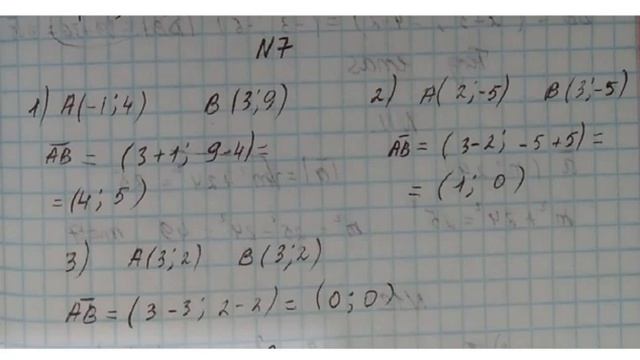 N7
1) A(-1;4) B(3;9)
A̅B̅ = (3+1; 9-4)=
=(4; 5)
2) A(2;-5) B(3;-5)
A̅B̅ = (3-2; -5+5)=
= (1; 0)
3) A(3;2) B(3;2)
A̅B̅ = (3-3; 2-2) = (0;0)